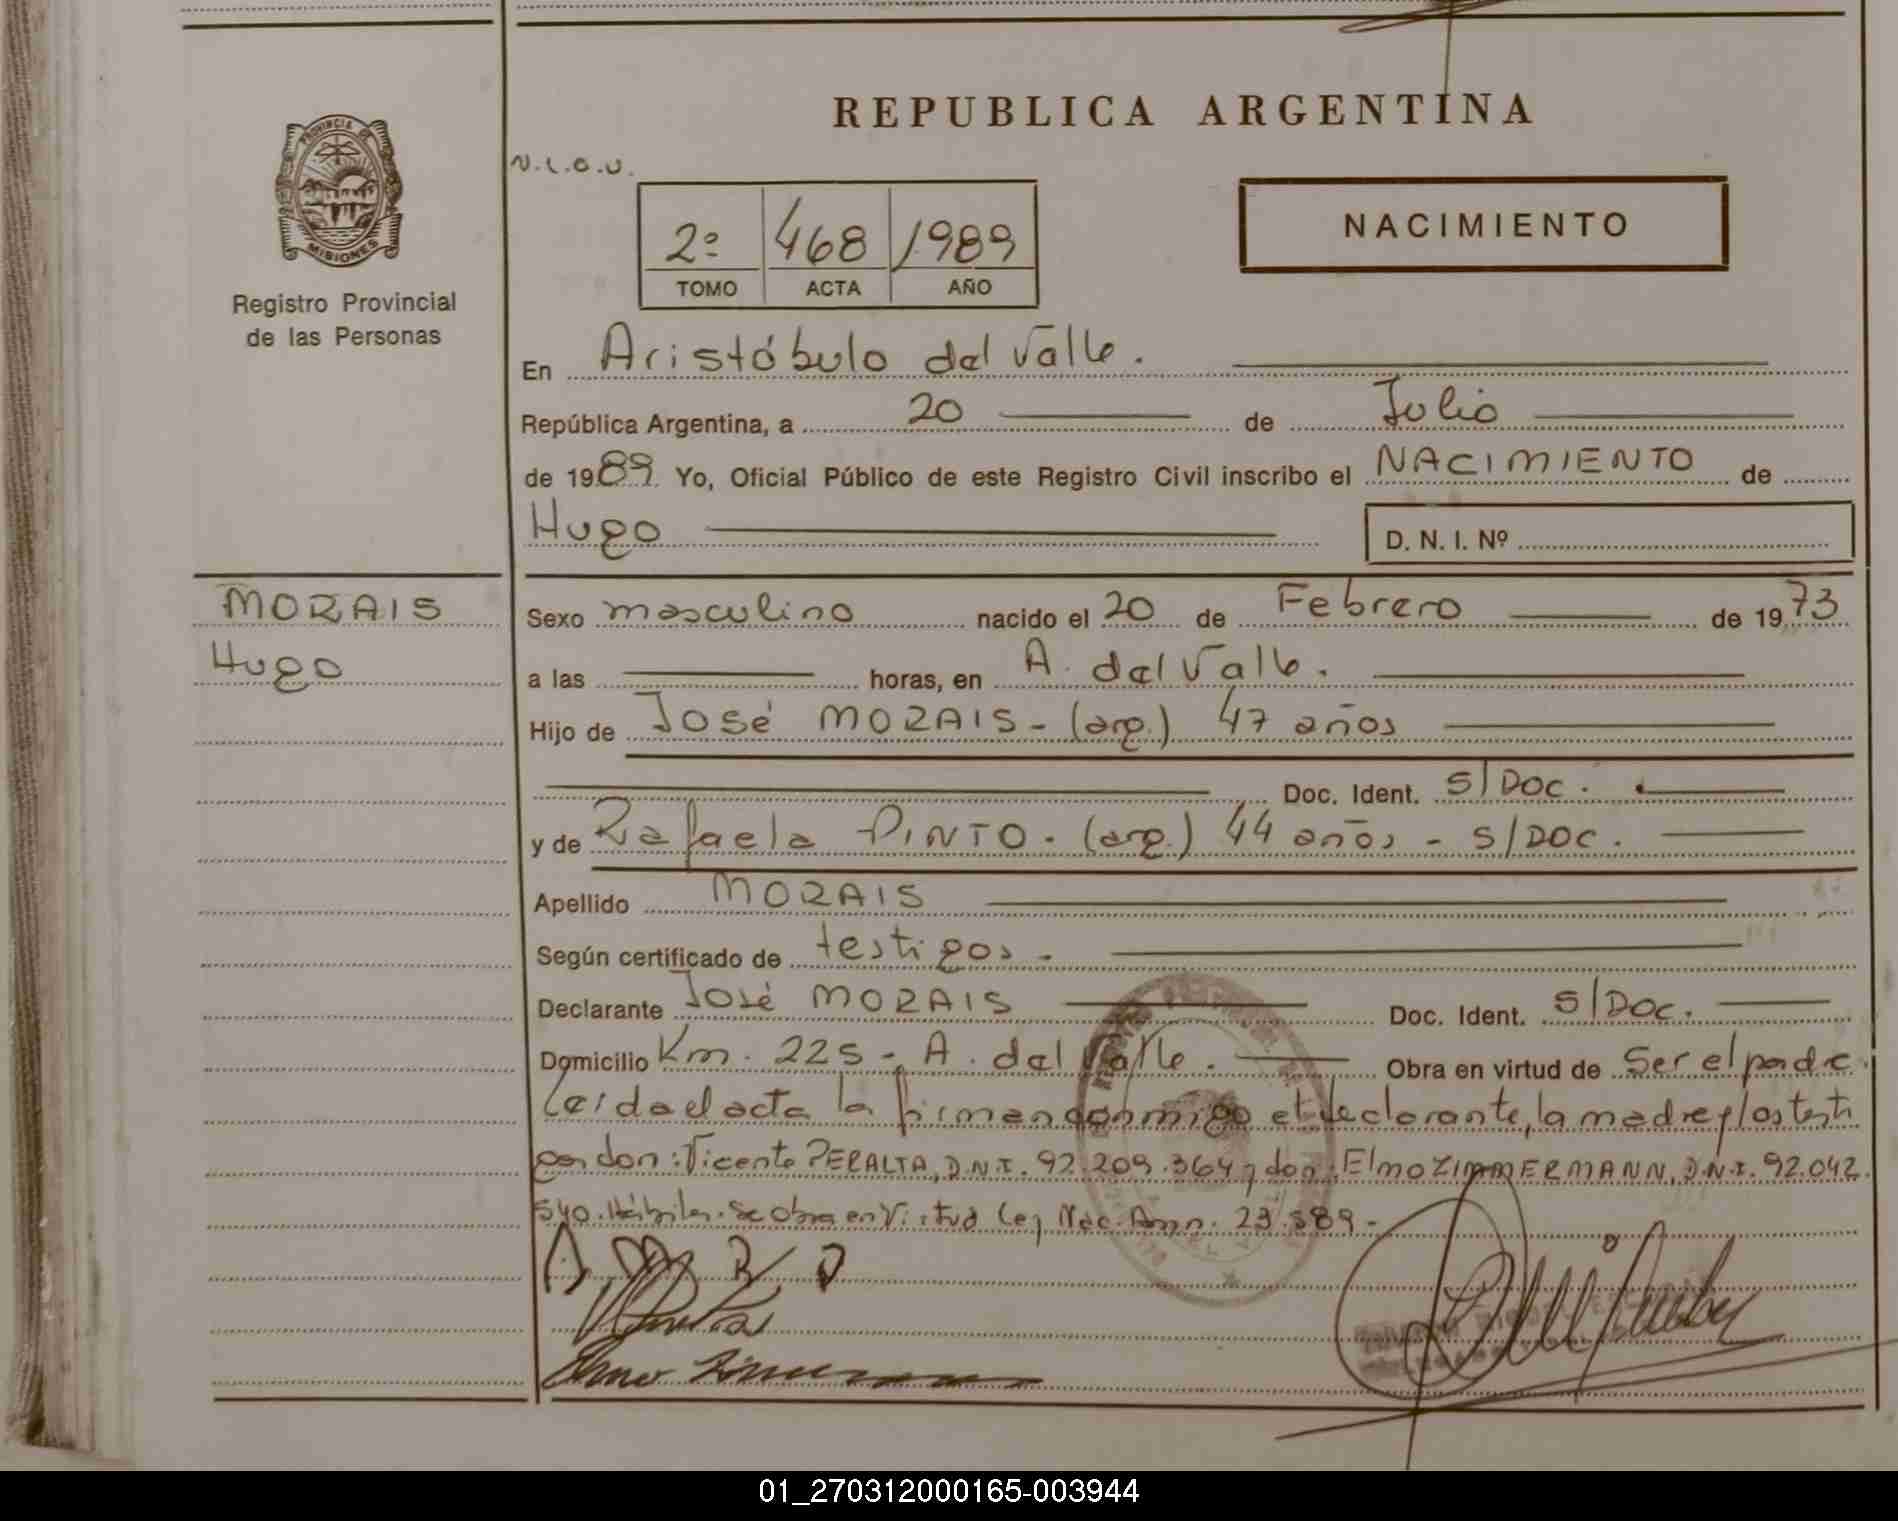 REPUBLICA ARGENTINA
PROVINCIA DE
MISIONES
Registro Provincial
de las Personas
N.L.O.U.
NACIMIENTO
2º 468 1989
TOMO ACTA AÑO
En Aristóbulo del Valle.
República Argentina, a 20 de Julio
de 1989 Yo, Oficial Público de este Registro Civil inscribo el NACIMIENTO de
Hugo D. N. I. Nº
MORAIS
Hugo
Sexo masculino nacido el 20 de Febrero de 1973
a las horas, en A. del Valle.
Hijo de José MORAIS - (arg.) 47 años
Doc. Ident. S/DOC.
y de Rafaela PINTO. (arg.) 44 años - S/DOC.
Apellido MORAIS
Según certificado de testigos.
Declarante José MORAIS Doc. Ident. S/DOC.
Domicilio Km. 225 - A. del Valle. Obra en virtud de Ser el padre
Leida el acta la firman conmigo el declarante, la madre y los testi
gos don: Vicente PERALTA, D.N.I. 92.209.364 y don: Elmo ZIMMERMANN, D.N.I. 92.042.
540. Hábiles. Se obra en Virtud Ley Nac. Amn. 23.589.-
01_270312000165-003944